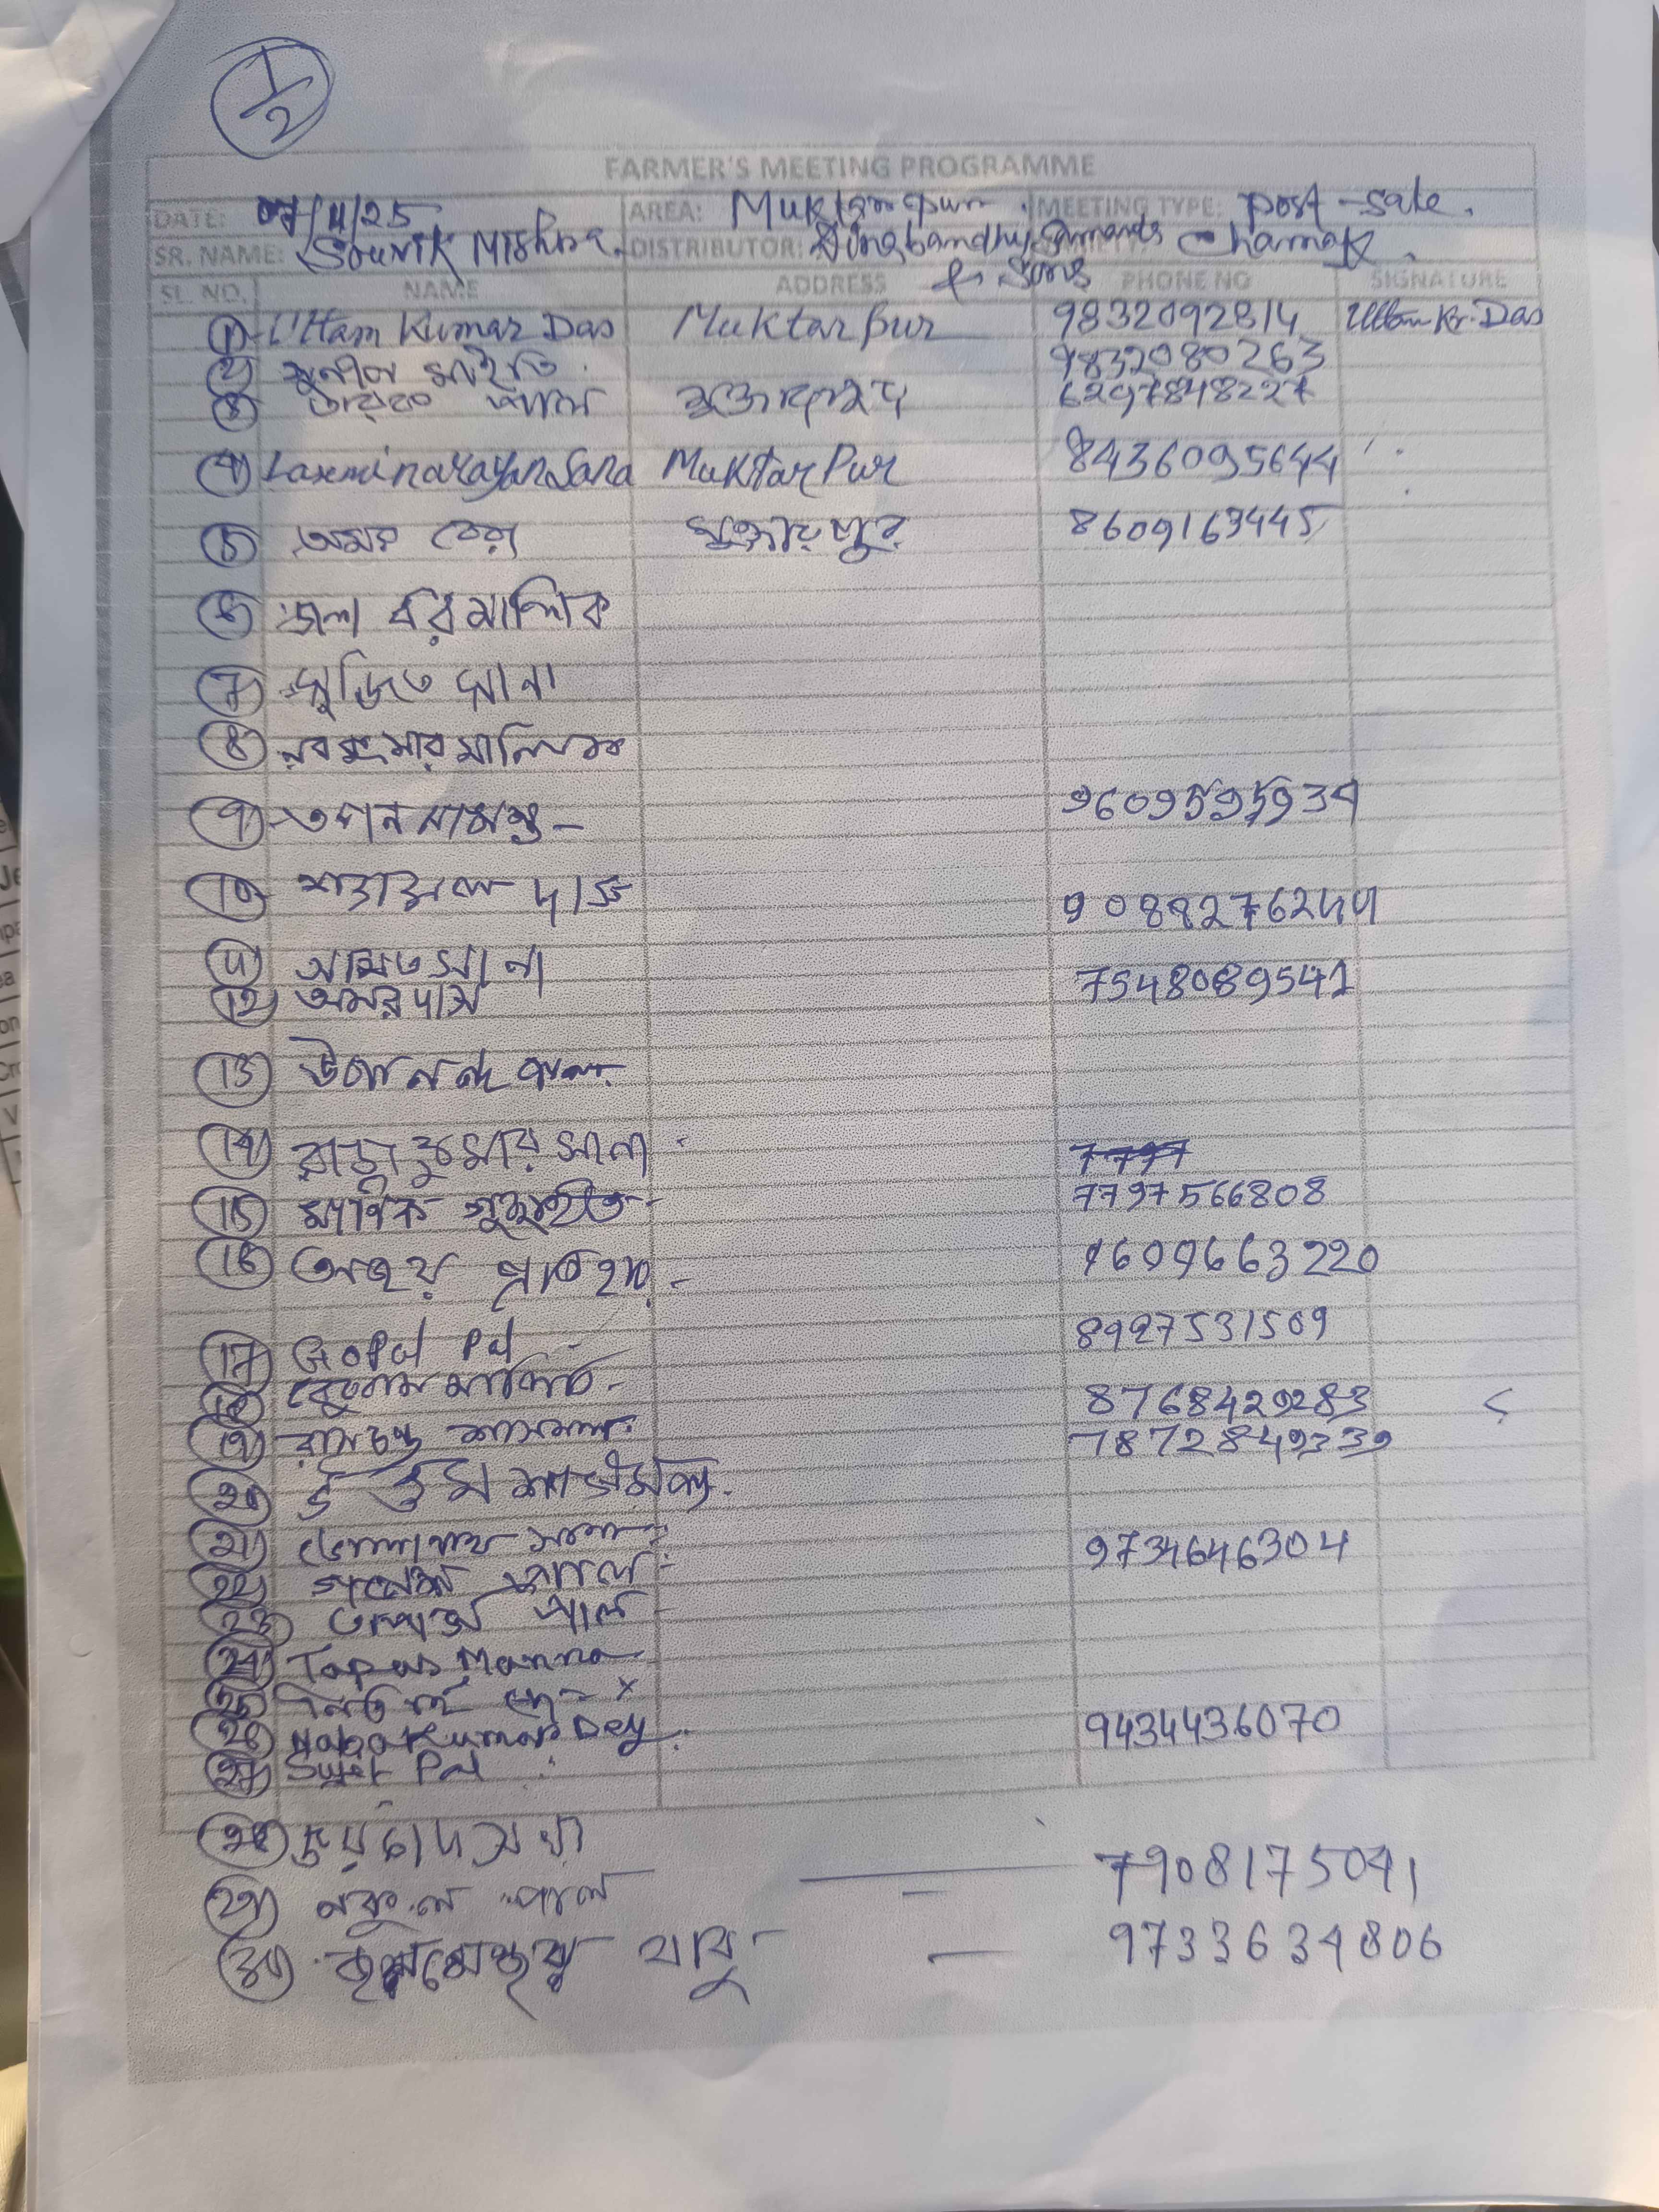 1/2
FARMER'S MEETING PROGRAMME
DATE: 07/11/25 AREA: Muktarpur. MEETING TYPE: post-sale.
SR. NAME: Souvik Mishra. DISTRIBUTOR: Dinabandhu Samanta & Sons Chamak.
SL. NO. NAME ADDRESS PHONE NO SIGNATURE
① Uttam Kumar Das MuktarPur 9832092814 Uttam Kr. Das
২ সুনীল মাইতি 9832080263
৩ তারক পাল মুক্তারপুর 6297848227
৪ Laxminarayan Sana MuktarPur 8436095644
৫ অমর বেরা মুক্তারপুর 8609163445
৬ জলধর মালিক
7 সুজিত সানা
8 নবকুমার মালিক
৯ তপন সামন্ত - 9609595934
10 শ্যামল দাস 9088276244
11 অমিত সানা
12 অমর দাস 7548089541
13 পাল
14 রাজকুমার সানা
7797
15 মানিক 7797566808
16 অজয় 9609663220
17 Gopal Pal - 8927531509
18 8768429283
19 রামচন্দ্র শাসমল 7872849339
20 উত্তম শাসমল
21 ভোলানাথ
22 গনেশ 9734646304
23 তাপস পাল
24 Tapas Manna
25 নিতাই x
26 Naba Kumar Dey 9434436070
27 Sujet Pal
28 জয়চাঁদ
29 নকুল পাল — 7908175041
30 বাবু - — 9733634806